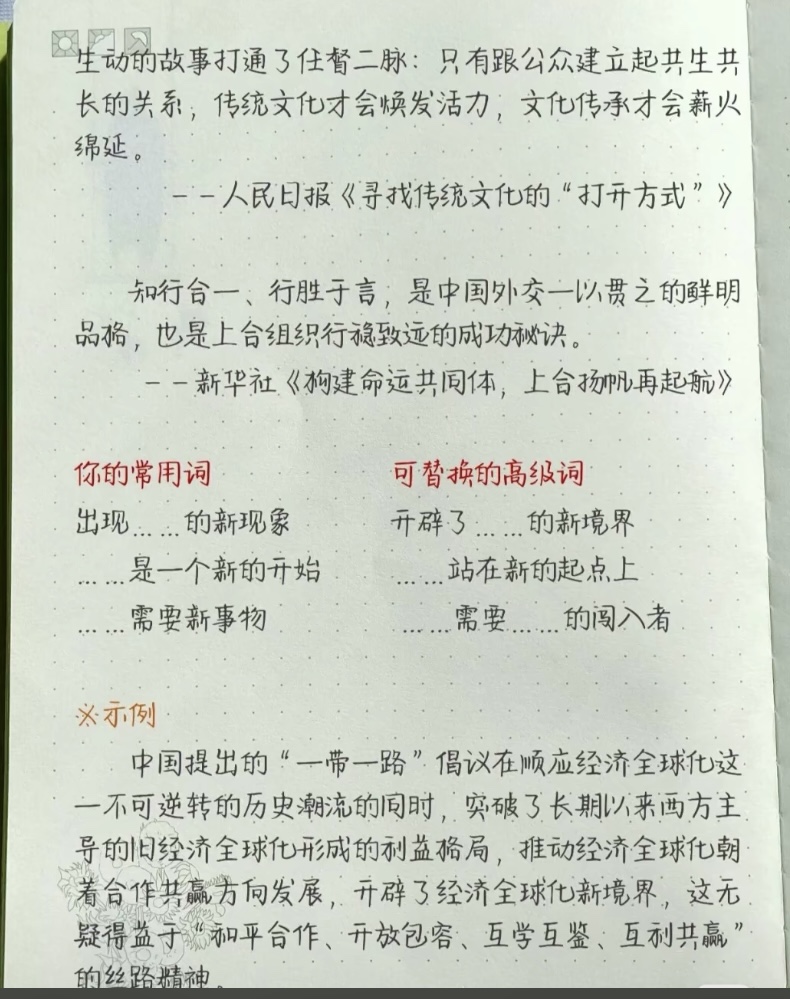 生动的故事打通了任督二脉：只有跟公众建立起共生共
长的关系，传统文化才会焕发活力，文化传承才会薪火
绵延。
——人民日报《寻找传统文化的“打开方式”》
知行合一、行胜于言，是中国外交一以贯之的鲜明
品格，也是上合组织行稳致远的成功秘诀。
——新华社《构建命运共同体，上合扬帆再起航》
你的常用词 可替换的高级词
出现……的新现象 开辟了……的新境界
……是一个新的开始 ……站在新的起点上
……需要新事物 ……需要……的闯入者
※示例
中国提出的“一带一路”倡议在顺应经济全球化这
一不可逆转的历史潮流的同时，突破了长期以来西方主
导的旧经济全球化形成的利益格局，推动经济全球化朝
着合作共赢方向发展，开辟了经济全球化新境界，这无
疑得益于“和平合作、开放包容、互学互鉴、互利共赢”
的丝路精神。